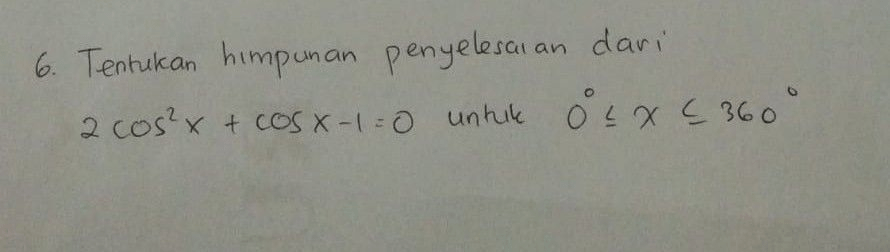 6. Tentukan himpunan penyelesaian dari
2 cos²x + cos x - 1 = 0 untuk 0° ≤ x ≤ 360°